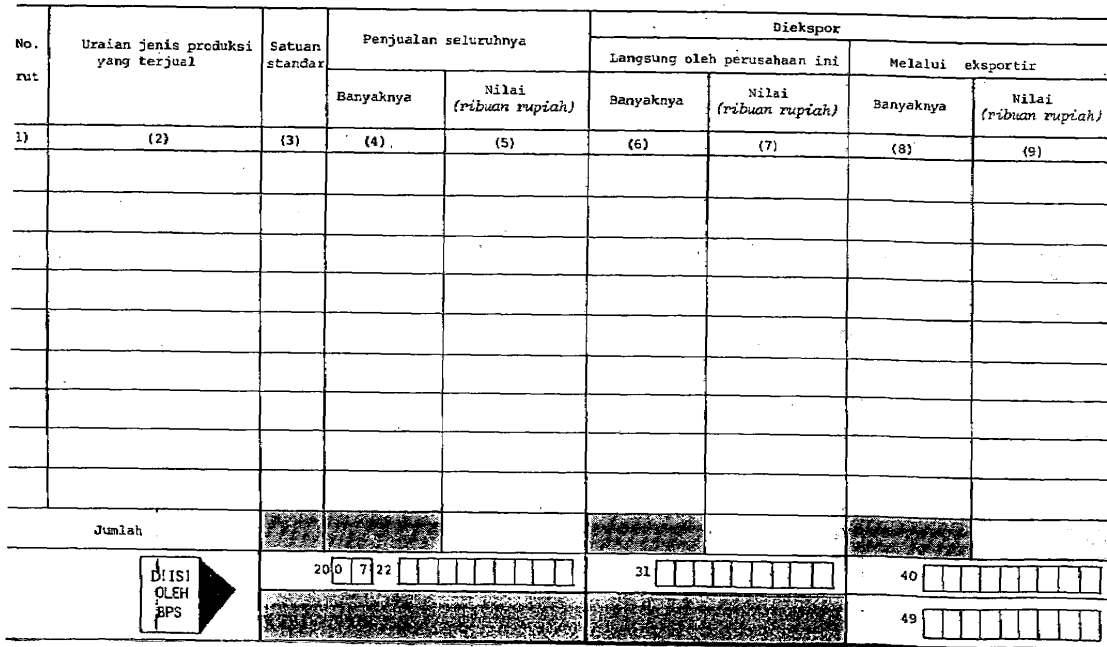 Diekspor
No.
rut
Uraian jenis produksi
yang terjual
Satuan
standar
Penjualan seluruhnya
Langsung oleh perusahaan ini
Melalui eksportir
Banyaknya
Nilai
(ribuan rupiah)
Banyaknya
Nilai
(ribuan rupiah)
Banyaknya
Nilai
(ribuan rupiah)
1) (2) (3) (4) (5) (6) (7) (8) (9)
Jumlah
DIISI
OLEH
BPS
20 0 7 22
31
40
49